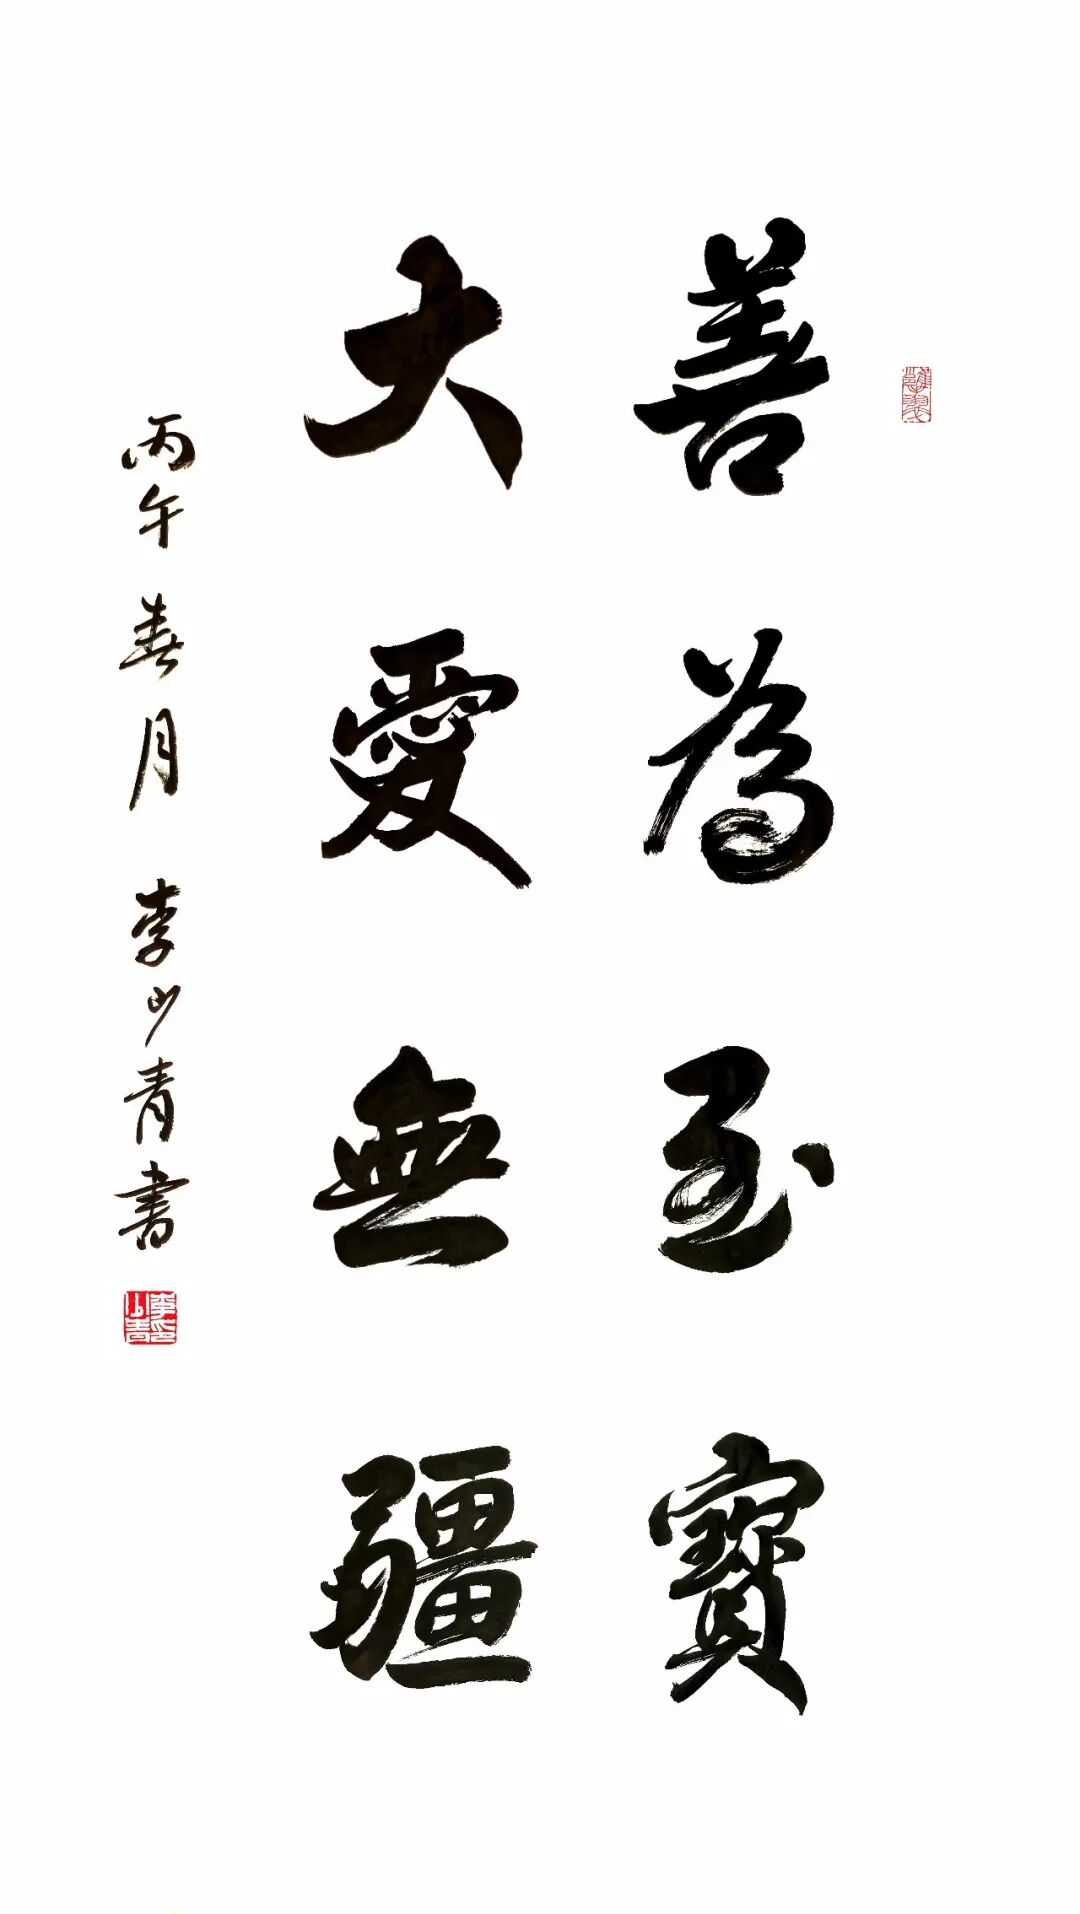 善為至寶
大愛無疆
丙午春月李少青書